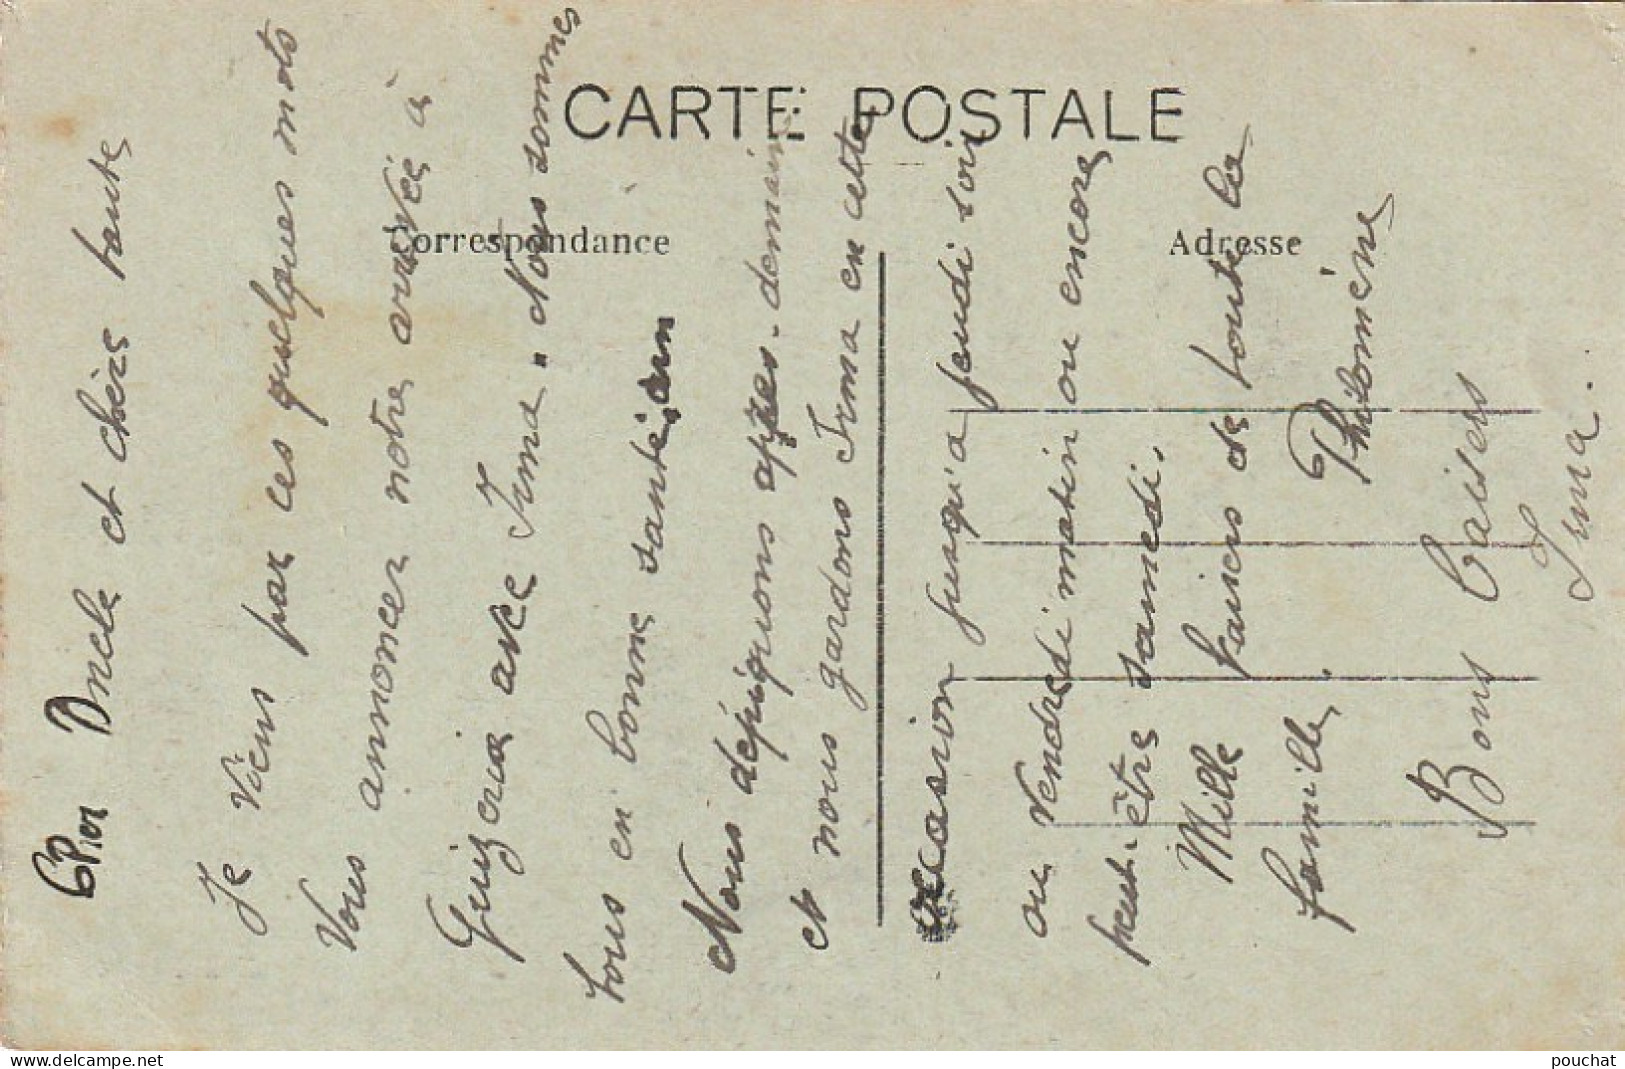 CARTE POSTALE
Correspondance
Adresse
Cher Oncle et chère tante
Je viens par ces quelques mots
Vous annoncer notre arrivée à
avec Irma. Nous sommes
tous en bonne santé,
Nous dépiquons après-demain
et nous gardons Irma en cette
occasion jusqu'a jeudi soir
ou vendredi matin ou encore
peut-être samedi.
Mille baisers de toute la
famille.
Philomène
Bons baisers
Irma.
delcampe.net
pouchat